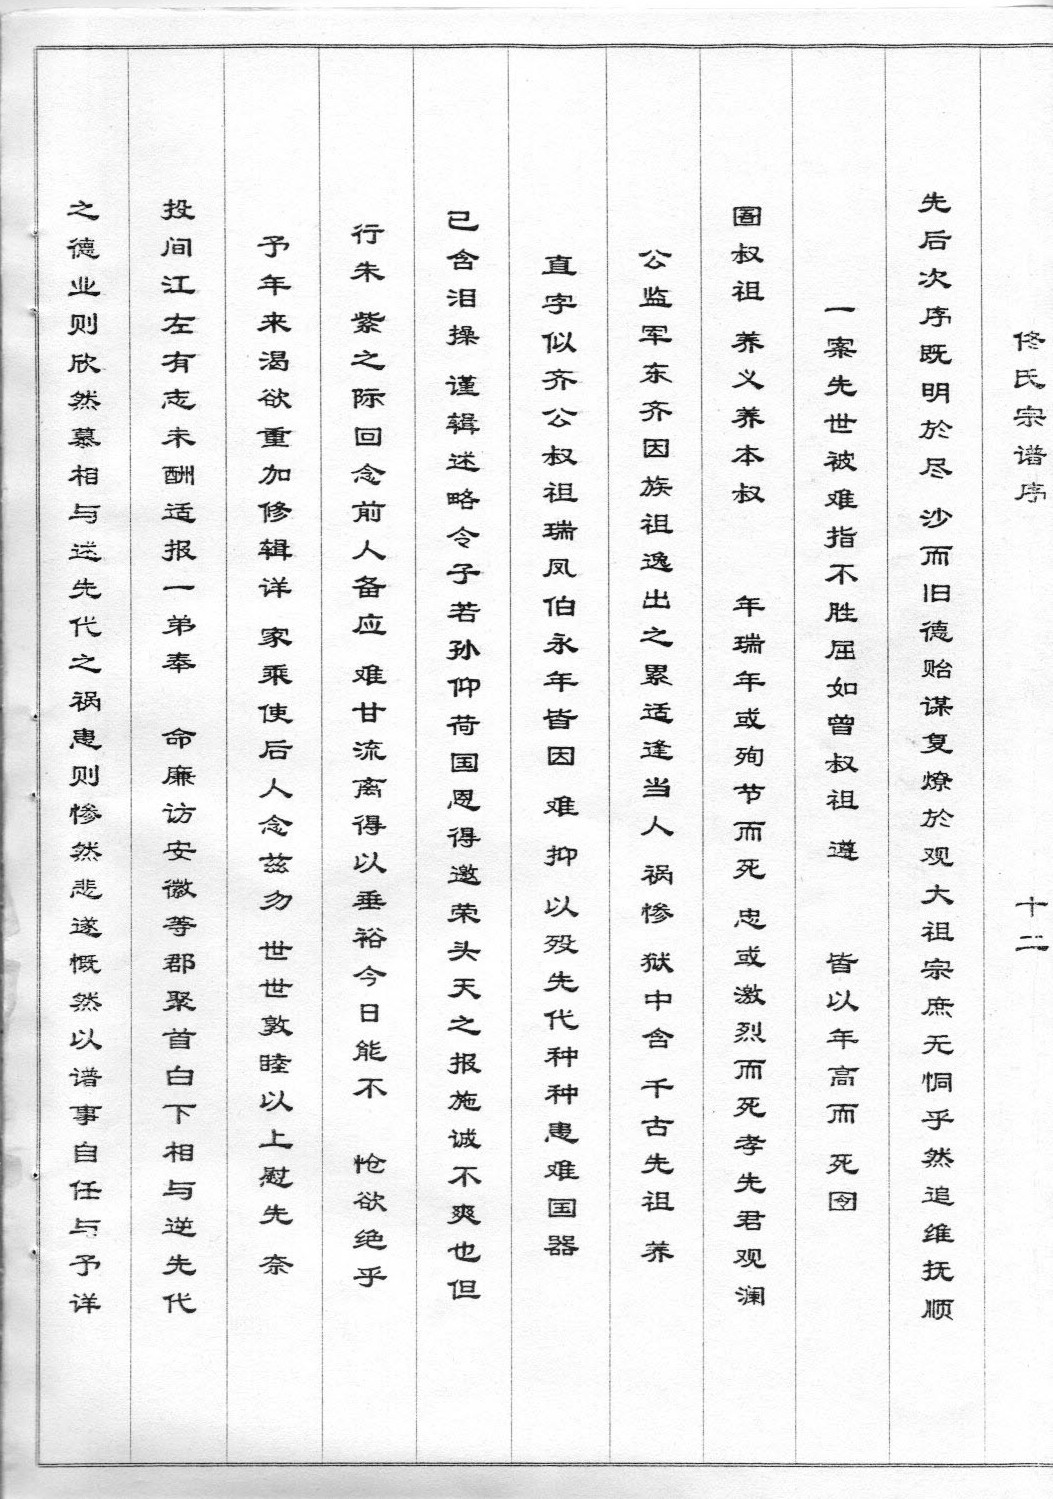 佟氏宗谱序 十二
先后次序既明於尽 沙而旧德贻谋复燎於观大祖宗庶无恫乎然追维抚顺
一案先世被难指不胜屈如曾叔祖 遵 皆以年高而 死囹
圄叔祖 养义养本叔 年瑞年或殉节而死 忠或激烈而死孝先君观澜
公监军东齐因族祖逸出之累适逢当人 祸惨 狱中含 千古先祖 养
直字似齐公叔祖瑞凤伯永年皆因 难 抑 以殁先代种种患难国器
己含泪操 谨辑述略令子若孙仰荷国恩得邀荣头天之报施诚不爽也但
行朱 紫之际回念前人备应 难甘流离得以垂裕今日能不 怆欲绝乎
予年来渴欲重加修辑详 家乘使后人念兹勿 世世敦睦以上慰先 奈
投间江左有志未酬适报一弟奉 命廉访安徽等郡聚首白下相与逆先代
之德业则欣然慕相与述先代之祸患则惨然悲遂慨然以谱事自任与予详